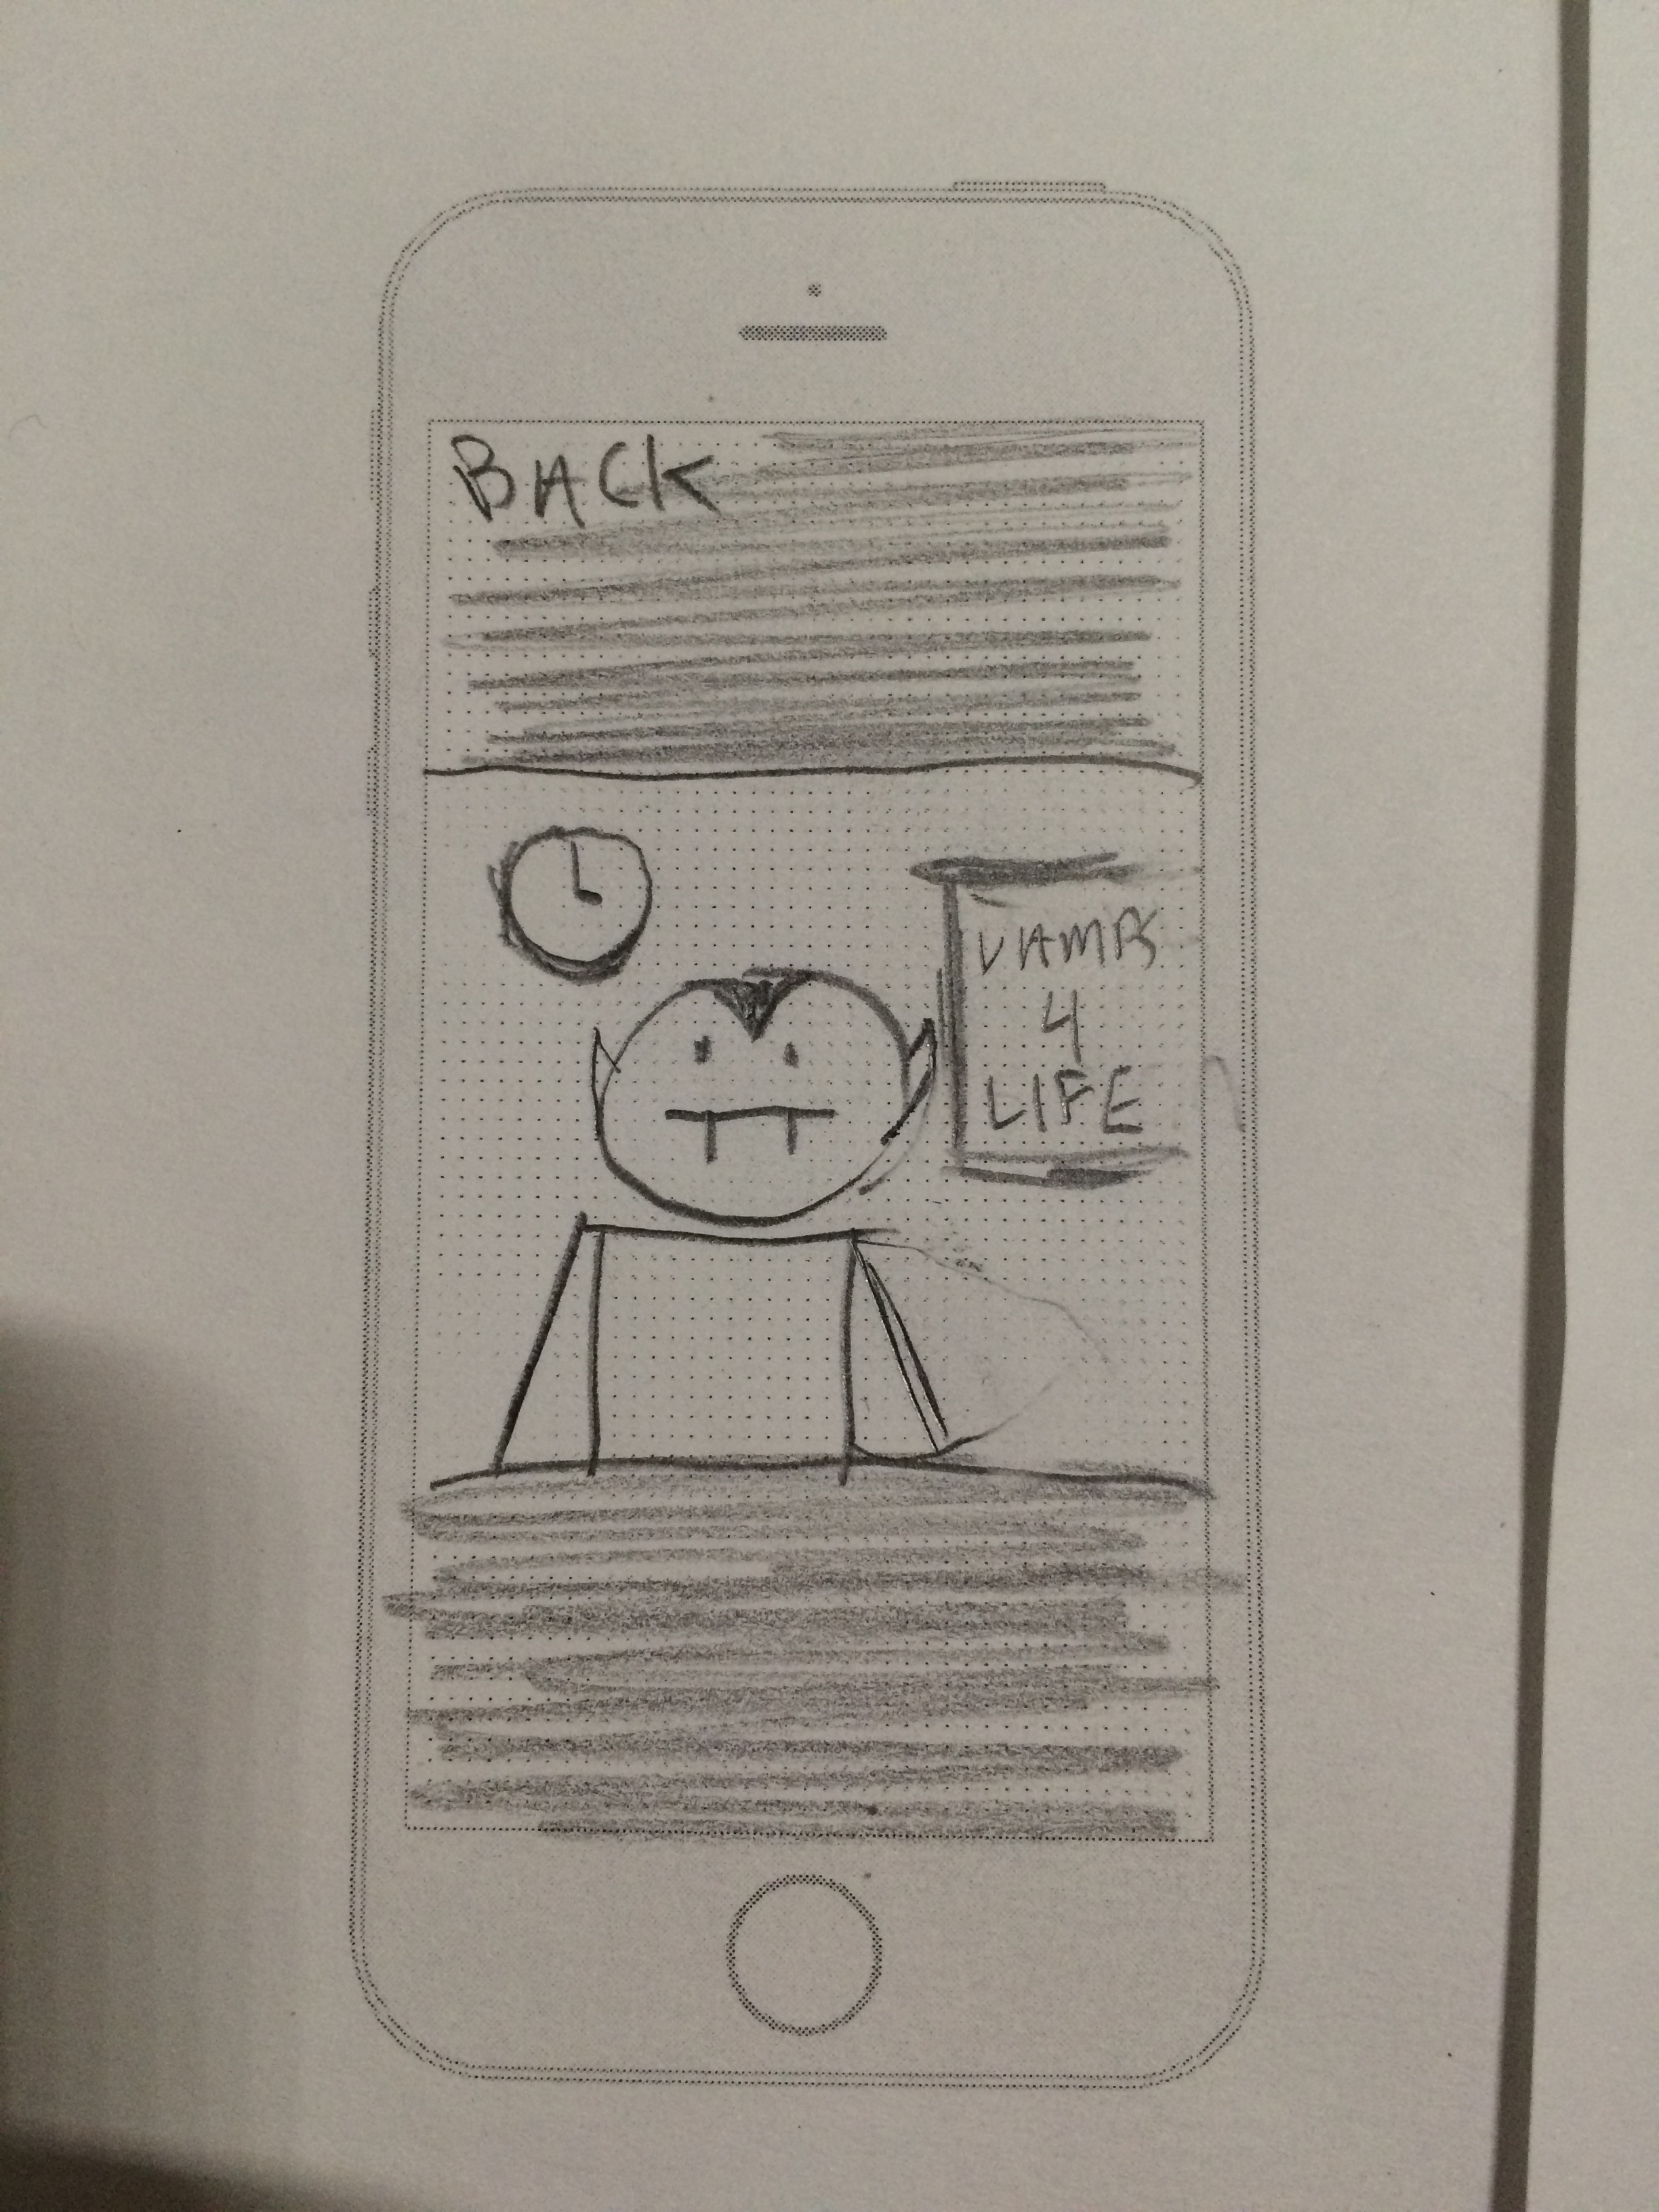 BACK
VAMPS
4
LIFE